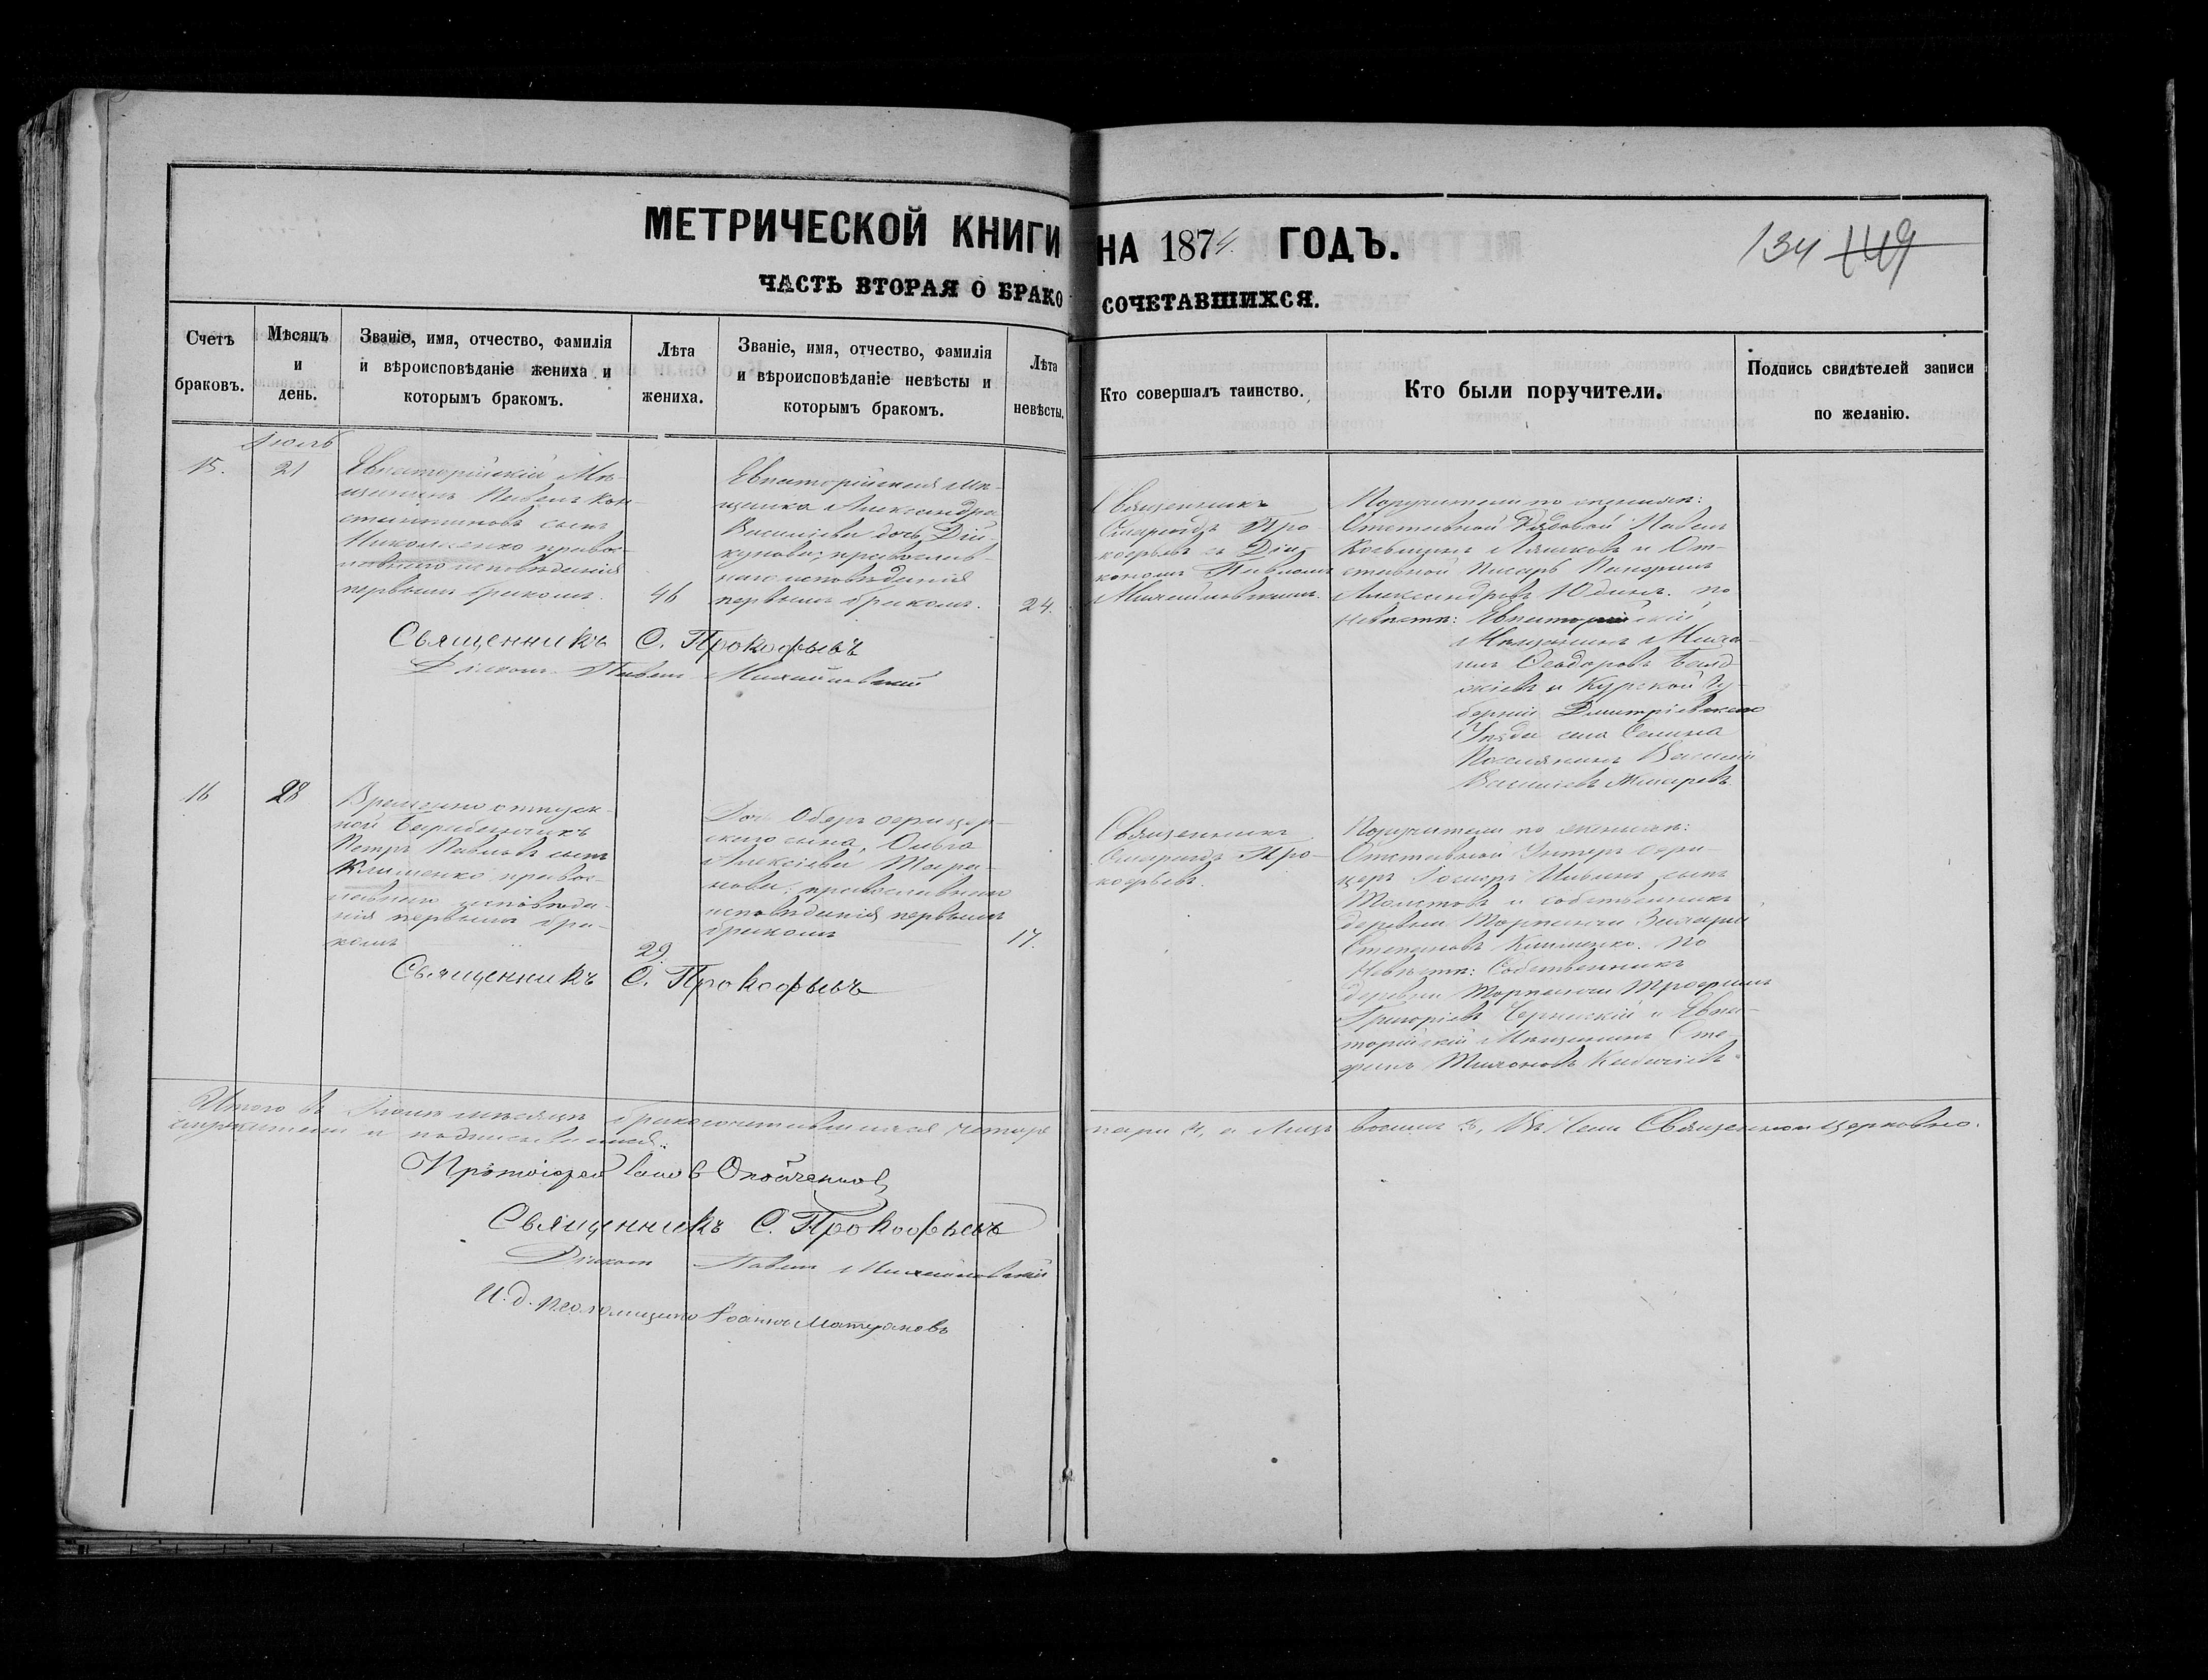 МЕТРИЧЕСКОЙ КНИГИ НА 1874 ГОДЪ.
134 149
ЧАСТЬ ВТОРАЯ О БРАКОСОЧЕТАВШИХСЯ.
Счетъ браковъ.
Мѣсяцъ и день.
Званіе, имя, отчество, фамилія
и вѣроисповѣданіе жениха и
которымъ бракомъ.
Лѣта
жениха.
Званіе, имя, отчество, фамилія
и вѣроисповѣданіе невѣсты и
которымъ бракомъ.
Лѣта
невѣсты.
Кто совершалъ таинство.
Кто были поручители.
Подпись свидѣтелей записи
по желанію.
Іюль
15.
21
Евпаторійскій Мѣ-
щанинъ Павелъ Кон-
стантиновъ сынъ
Николаенко правос-
лавнаго исповѣданія
первымъ бракомъ.
46
Евпаторійская Мѣ-
щанка Александра
Васильева дочь
православ-
наго исповѣданія
первымъ бракомъ.
24.
Священникъ
Спиридъ Про-
кофьевъ съ Діа-
кономъ Павломъ
Михайловскимъ.
Поручители по женихѣ:
Отставной Рядовой Павелъ
и От-
ставной Писарь
Александровъ Юдинъ. по
Невѣстѣ: Евпаторійскій
Мѣщанинъ Миха-
илъ Феодоровъ
и Курской Гу-
берніи Дмитріевскаго
Уѣзда села
Поселянинъ Василій
Васильевъ
Священникъ С. Прокофьевъ
Діаконъ Павелъ Михайловскій
16
28
Временно отпуск-
ной
Петръ Павловъ сынъ
Клименко правос-
лавнаго исповѣда-
нія первымъ бра-
комъ
29.
Дочь Оберъ офицер-
скаго сына, Ольга
Алексѣева
православнаго
исповѣданія первымъ
бракомъ
17.
Священникъ
Спиридъ Про-
кофьевъ.
Поручители по женихѣ:
Отставной Унтеръ офи-
церъ сынъ
Толстовъ и собственникъ
деревни Захарій
Степановъ Клименко. по
Невѣстѣ: Собственникъ
деревни Трофимъ
Григоріевъ и Евпа-
торійскій Мѣщанинъ Сте-
фанъ Тихоновъ
Священникъ С. Прокофьевъ
Итого въ Іюлѣ мѣсяцѣ бракосочетавшихся четыре пары 4, а лицъ восемь 8, Въ чемъ Священно церковно-
служители и подписываемся.
Протоіерей
Священникъ С. Прокофьевъ
Діаконъ Павелъ Михайловскій
И. д. псаломщика